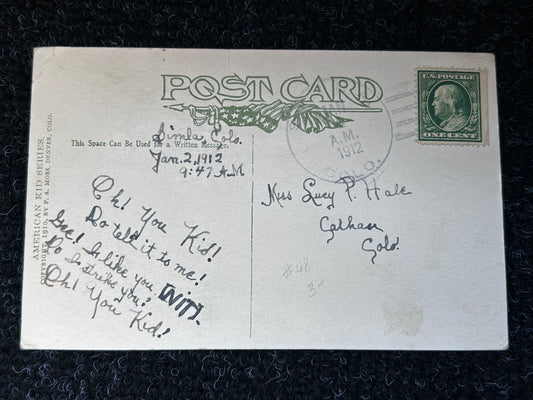 POST CARD
This Space Can Be Used for a Written Message.
AMERICAN KID SERIES.
COPYRIGHT, 1910, BY F. A. MOSS, DENVER, COLO.
U.S. POSTAGE
ONE CENT
A.M.
1912
COLO.
Simla, Colo.
Jan. 2, 1912
9:47 A.M
Oh! You Kid!
Do tell it to me!
Gee! Is like you
[NIT].
Do I strike you?
Oh! You Kid!
Miss Lucy P. Hale
Calhan
Colo.
#48
3-